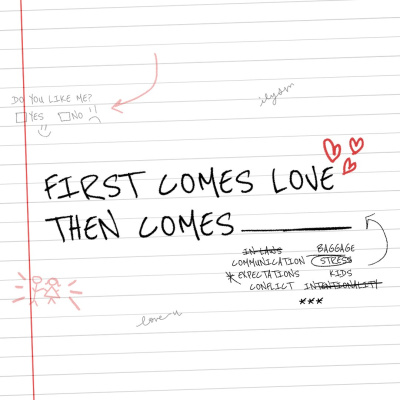 DO YOU LIKE ME?
YES NO
ilysm
FIRST COMES LOVE
THEN COMES
IN LAWS BAGGAGE
COMMUNICATION STRESS
*EXPECTATIONS KIDS
CONFLICT INTENTIONALITY
***
love u